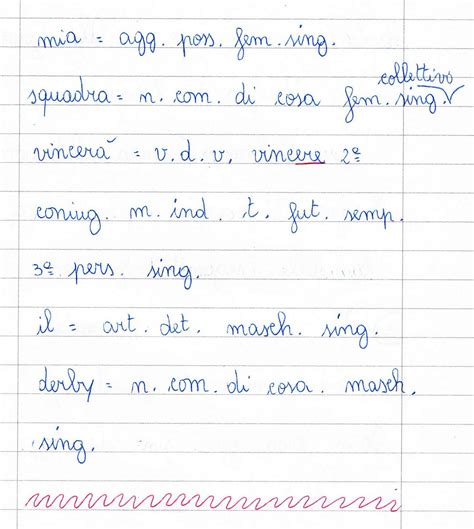 mia = agg. poss. fem. sing.
collettivo
squadra = n. com. di cosa fem. sing.
vincerà = v. d. v. vincere 2ª
coniug. m. ind. t. fut. semp.
3ª pers. sing.
il = art. det. masch. sing.
derby = n. com. di cosa. masch.
sing.